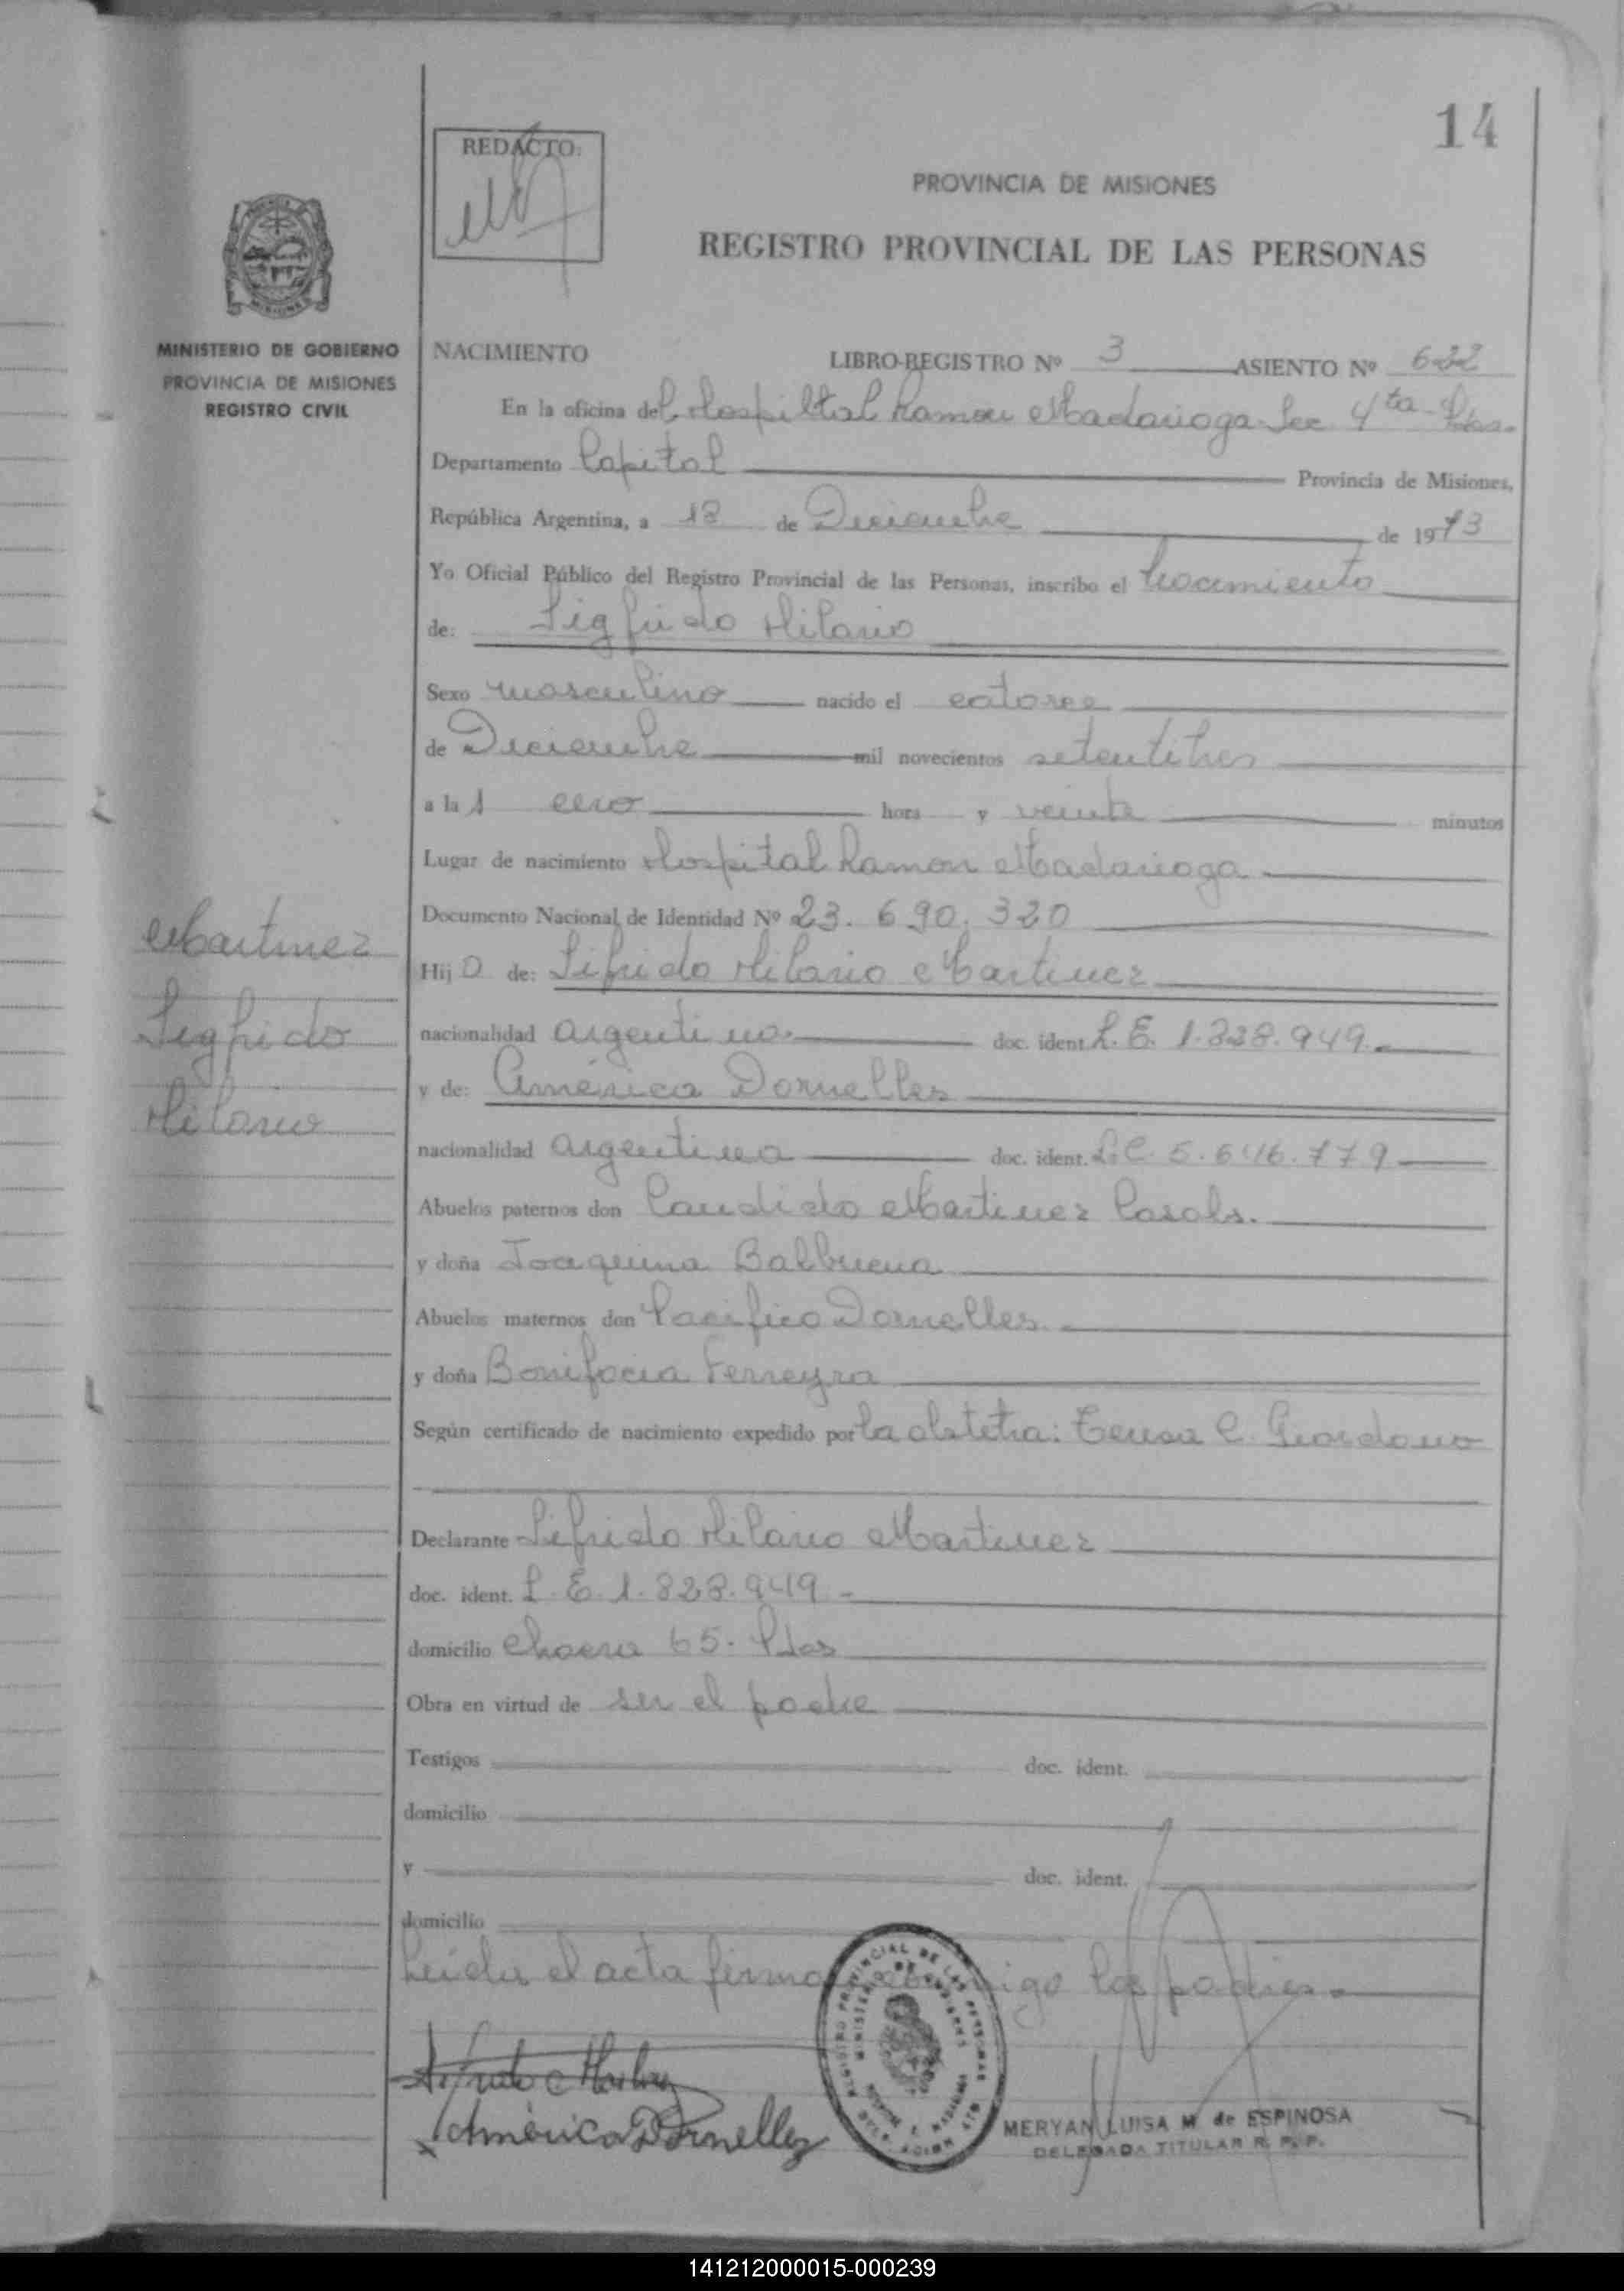 14
REDACTO:
PROVINCIA DE MISIONES
REGISTRO PROVINCIAL DE LAS PERSONAS
MINISTERIO DE GOBIERNO
PROVINCIA DE MISIONES
REGISTRO CIVIL
NACIMIENTO LIBRO-REGISTRO Nº 3 ASIENTO Nº 622
En la oficina del Hospiltal Ramon Madariaga Sec 4ta - Pdas.
Departamento Capital Provincia de Misiones,
República Argentina, a 18 de Diciembre de 1973
Yo Oficial Público del Registro Provincial de las Personas, inscribo el nacimiento
de: Sigfrido Hilario
Sexo masculino nacido el catorce
de Diciembre mil novecientos setentitres
a la s cero hora y veinte minutos
Lugar de nacimiento Hospital Ramon Madariaga
Documento Nacional de Identidad Nº 23.690.320
Martinez
Sigfrido
Hilario
Hij o de: Sifrido Hilario Martinez
nacionalidad argentina doc. ident. L.E. 1.828.949.
y de: América Dornelles
nacionalidad argentina doc. ident. L.C. 5.646.779
Abuelos paternos don Candido Martinez Casals.
y doña Joaquina Balbuena
Abuelos maternos don Pacifico Dornelles.
y doña Bonifacia Ferreyra
Según certificado de nacimiento expedido por la obstetra: Teresa C. Giordano
Declarante Sifrido Hilario Martinez
doc. ident. L.E. 1.828.949 -
domicilio chacra 65. Pdas
Obra en virtud de ser el padre
Testigos doc. ident.
domicilio
y doc. ident.
domicilio
Leida el acta firman conmigo los padres.
América Dornelles
REGISTRO PROVINCIAL DE LAS PERSONAS
MINISTERIO DE GOBIERNO
MERYAN LUISA M. de ESPINOSA
DELEGADA TITULAR R. P. P.
141212000015-000239